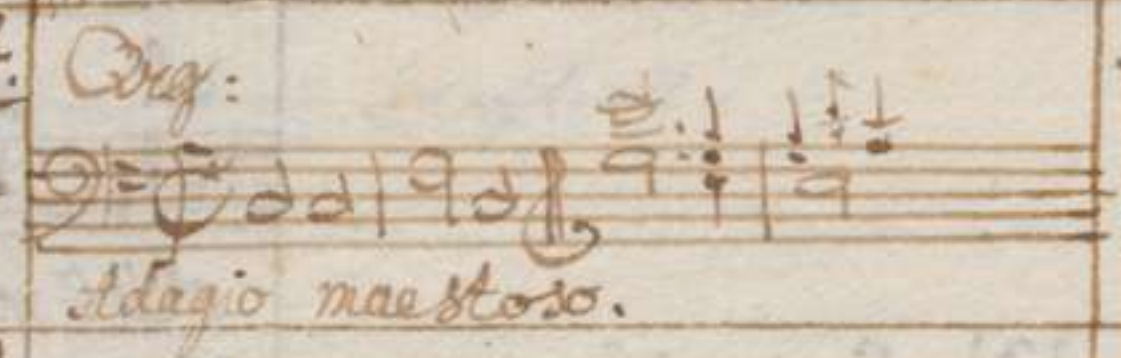 Org:
Adagio maestoso.